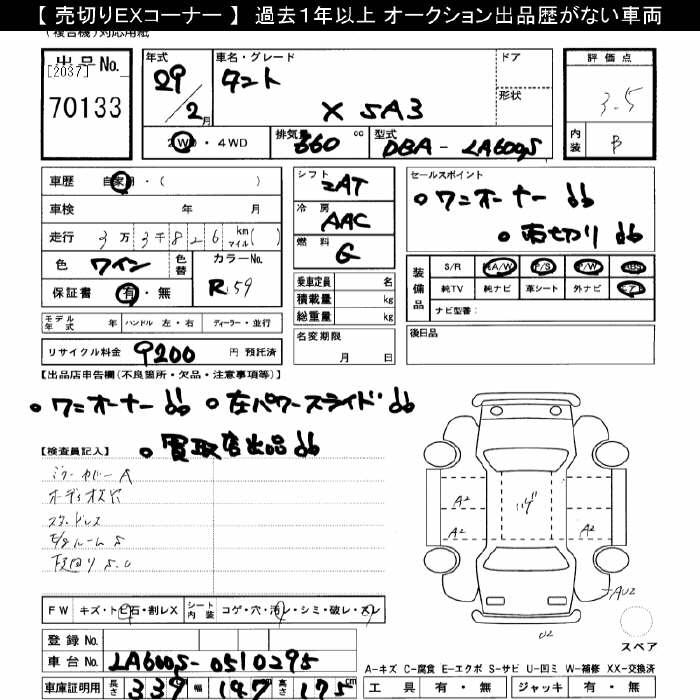 【 売切りEXコーナー 】 過去1年以上 オークション出品歴がない車両
出品No.
[2037]
70133
年式 29/2月
車名・グレード タント X SA3
ドア
形状
評価点 3.5
内装 B
2WD・4WD
排気量 660 cc
型式 DBA-LA600S
車歴 自家用・( )
車検 年 月
走行 3万3千826 km マイル( )
色 ワイン
色替
カラーNo. R59
保証書 有・無
シフト 2AT
冷房 AAC
燃料 G
セールスポイント
○ワンオーナー
○売切り
乗車定員 名
積載量 kg
総重量 kg
装備品 S/R A/W P/S P/W ABS
純TV 純ナビ 革シート 外ナビ エアB
ナビ型番:
モデル年式 年 ハンドル 左・右 ディーラー・並行
名変期限 月 日
後日品
リサイクル料金 9200 円 預託済
【出品店申告欄(不良箇所・欠品・注意事項等)】
○ワンオーナー ○左パワースライド
○買取店出品
【検査員記入】
ミラーカバーA
A2 A2 A2
AU2
U2
FW キズ・トビ石・割レX
シート内装 コゲ・穴・汚レ・シミ・破レ・スレ
スペア
登録No.
車台No. LA600S-0510295
A-キズ C-腐食 E-エクボ S-サビ U-凹ミ W-補修 XX-交換済
車庫証明用 長さ 339 cm 幅 147 cm 高さ 175 cm
工具 有・無 ジャッキ 有・無